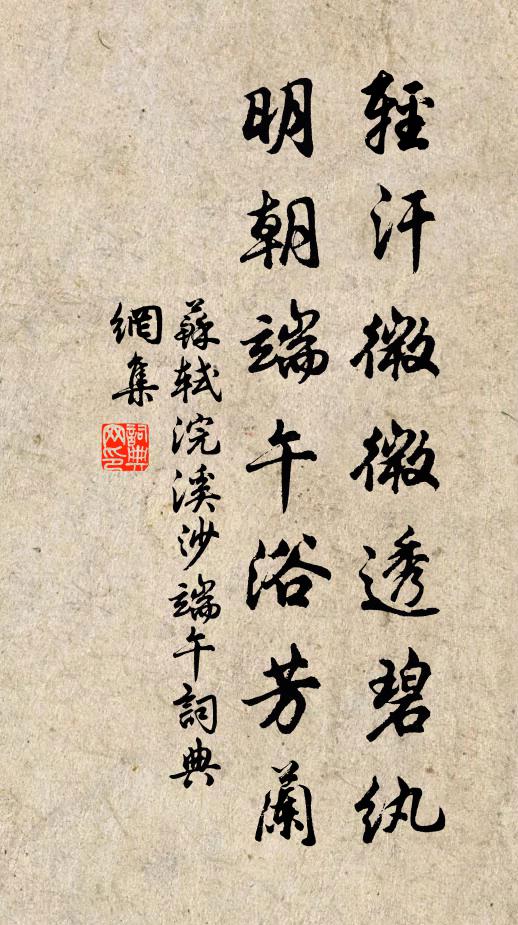 輕汗微微透碧紈
明朝端午浴芳蘭
蘇軾浣溪沙端午詞典
網集
詞典網印